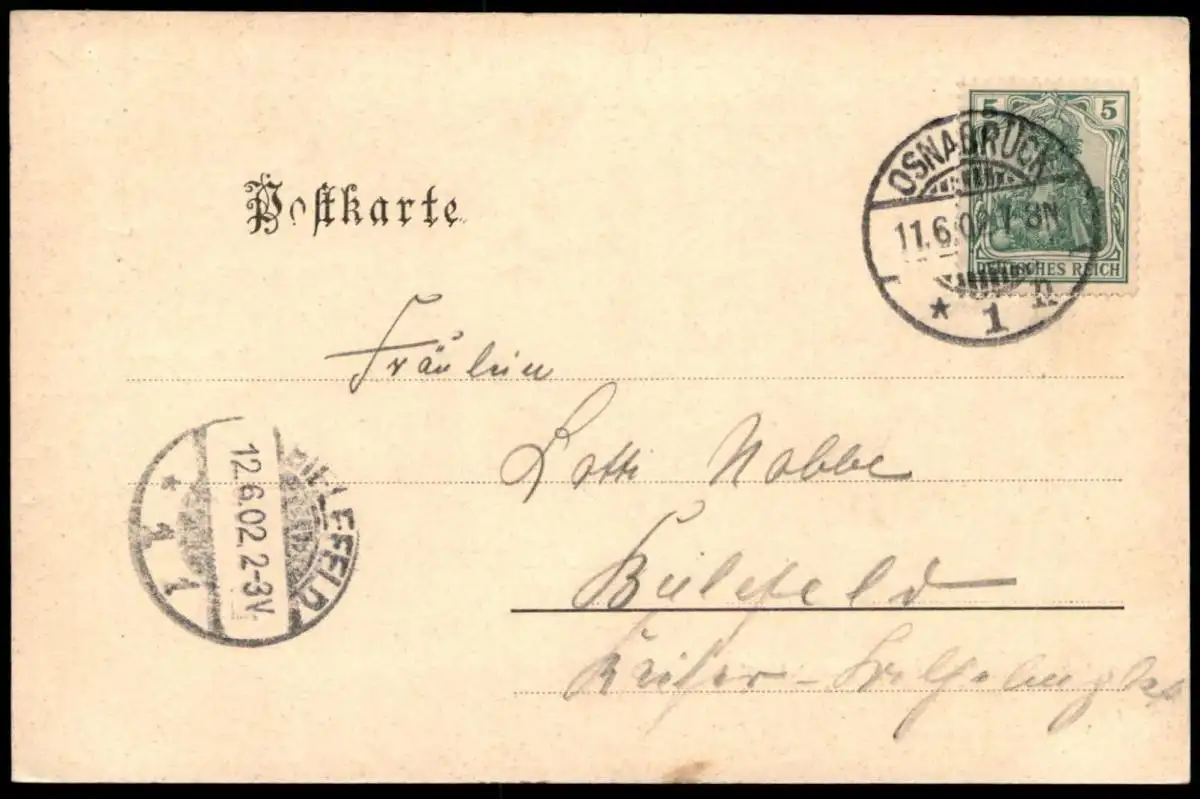 5 5
OSNABRÜCK
11.6.02. 7-8N
DEUTSCHES REICH
* 1 n
Postkarte
Fräulein
Lotti Nobbe
Bielefeld
Kaiser-Wilhelmplatz
BIELEFELD
12.6.02. 2-3V.
* 1